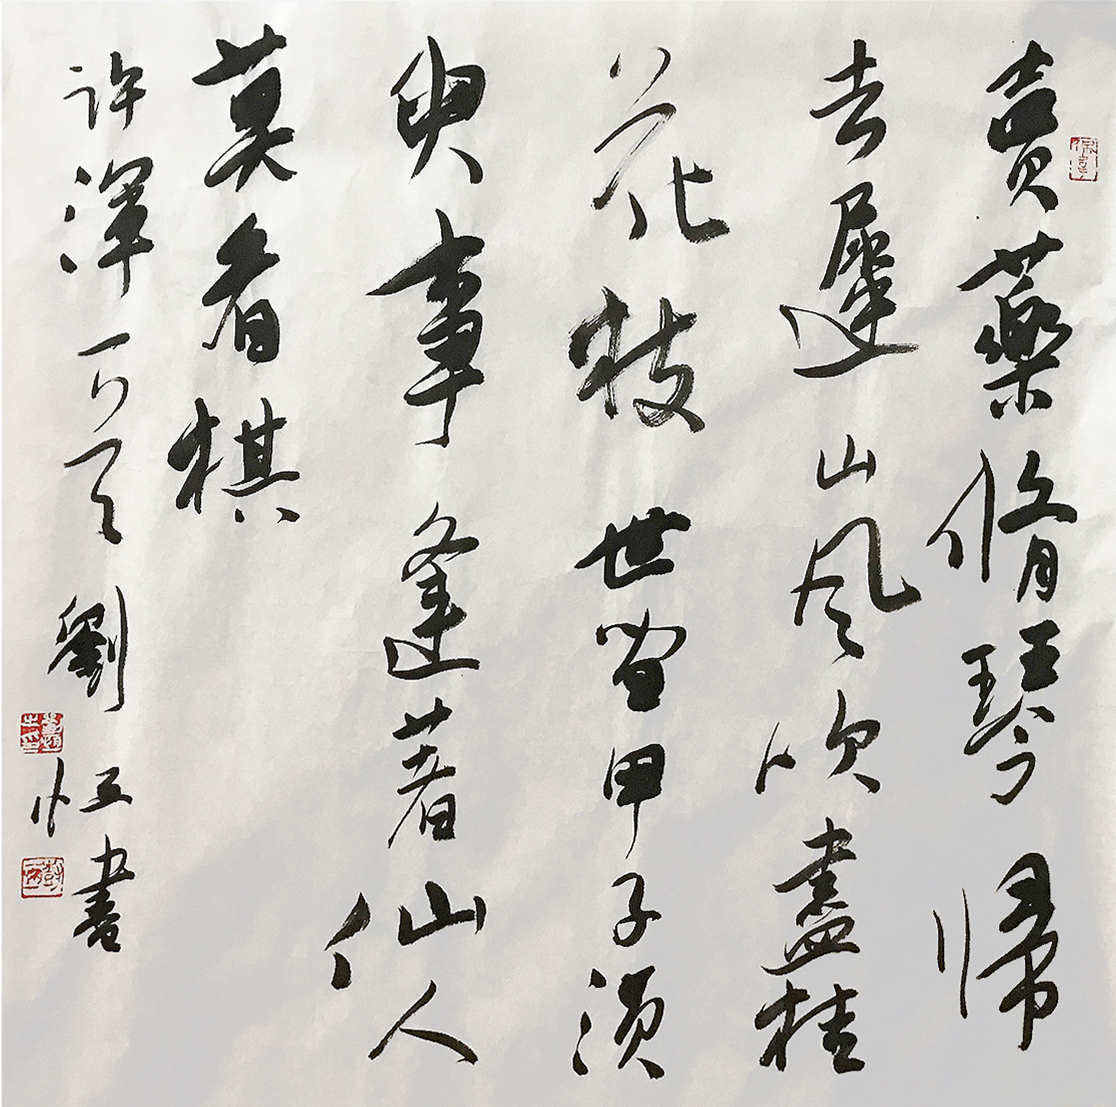 賣藥脩琴帰
去遲山風吹盡桂
花枝世間甲子須
臾事逢著仙人
莫看棋
許渾一首劉恒書